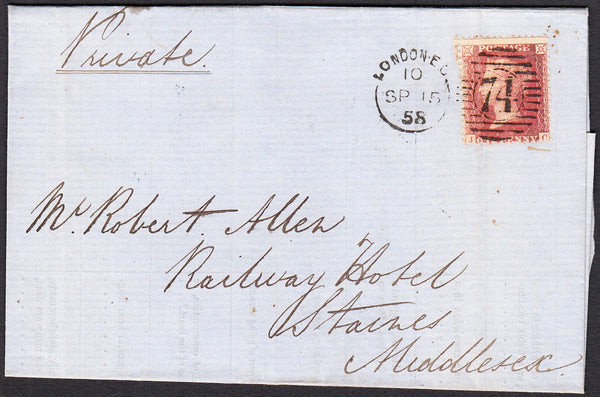 Private.
LONDON·E.C
10
SP 15
58
POSTAGE
74
Mr Robert Allen
Railway Hotel
Staines
Middlesex